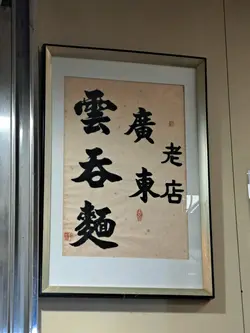 老店
廣東
雲吞麵